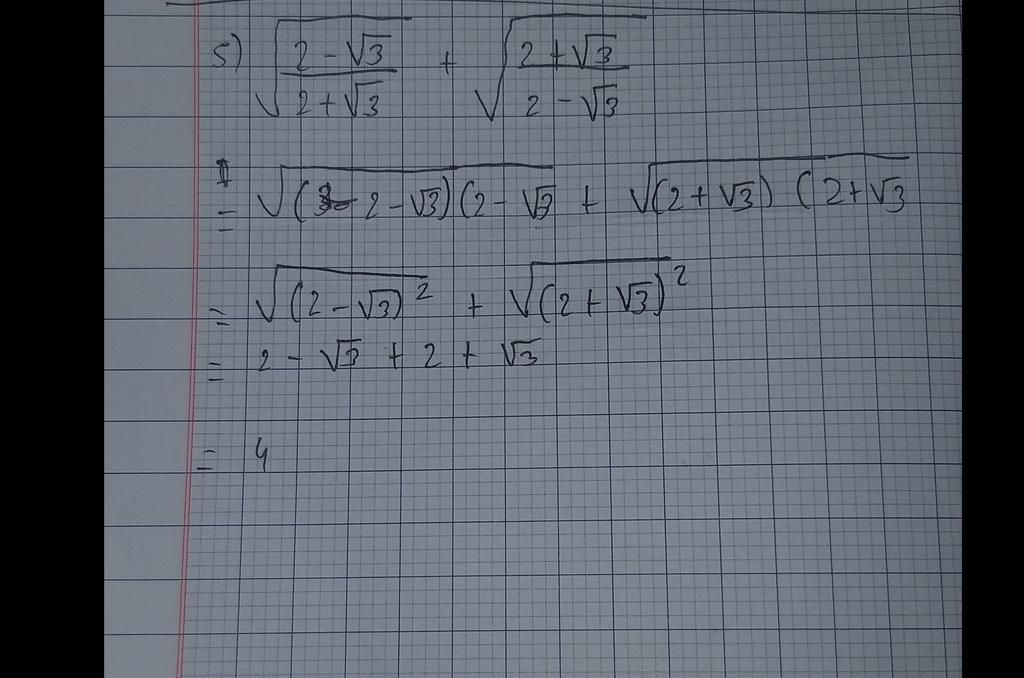 5) √((2 - √3)/(2 + √3)) + √((2 + √3)/(2 - √3))
= √((2 - √3)(2 - √3 + √((2 + √3) (2 + √3
= √((2 - √3)²) + √(2 + √3)²
= 2 - √3 + 2 + √3
= 4